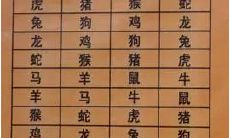 虎 猪 猴 蛇
兔 狗 鸡 兔
龙 鸡 狗 龙
蛇 猴 猪 虎
马 羊 鼠 牛
羊 马 牛 鼠
猴 蛇 虎 猪
鸡 龙 兔 狗